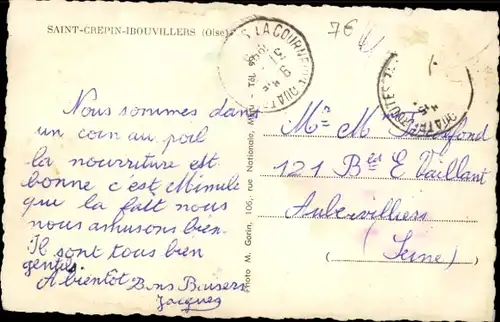 SAINT-CREPIN-IBOUVILLERS (Oise)
7€
LA COURNEUVE QUATRE ROUTES
QUATRE ROUTES
Nous sommes dans
un coin au poil
la nourriture est
bonne c'est Mimile
que la fait nous
nous amusons bien.
Il sont tous bien
gentils.
A bientôt Bons Baisers
Jacques
Photo M. Gorin, 106, rue Nationale,
Mr M
121 Bd E Vaillant
Aubervilliers
(Seine)